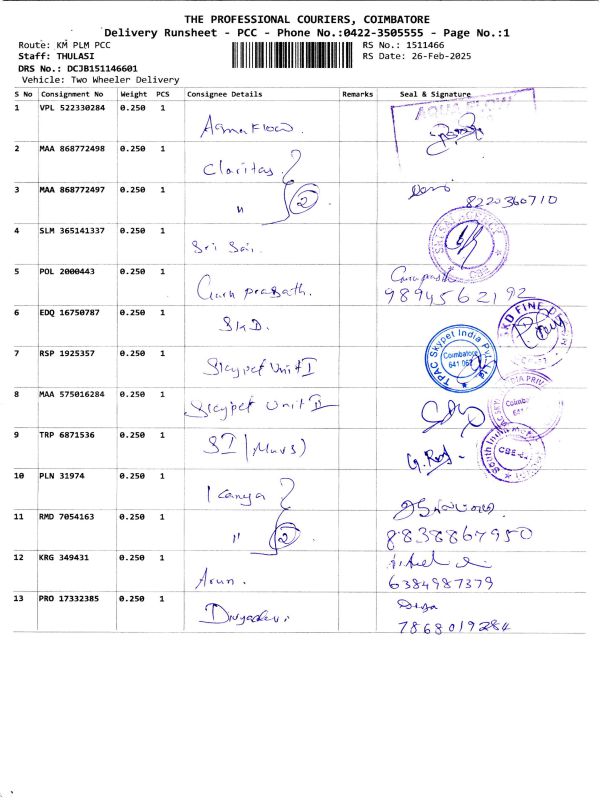 THE PROFESSIONAL COURIERS, COIMBATORE
Delivery Runsheet - PCC - Phone No.:0422-3505555 - Page No.:1
Route: KM PLM PCC RS No.: 1511466
Staff: THULASI RS Date: 26-Feb-2025
DRS No.: DCJB151146601
Vehicle: Two Wheeler Delivery
S No Consignment No Weight PCS Consignee Details Remarks Seal & Signature
1 VPL 522330284 0.250 1 Aqua Flow. AQUA FLOW
2 MAA 868772498 0.250 1 Claritas.
3 MAA 868772497 0.250 1 " 2 8220360710
4 SLM 365141337 0.250 1 Sri Sai. CBE
5 POL 2000443 0.250 1 Guru prasath. 9894562192
6 EDQ 16750787 0.250 1 SKD. SKD FINE
7 RSP 1925357 0.250 1 Skypet Unit I TPAC Skypet India Pvt. Coimbatore 641 062
8 MAA 575016284 0.250 1 Skypet Unit II
9 TRP 6871536 0.250 1 SI (Muvs) G. South India CBE
10 PLN 31974 0.250 1 Kanya
11 RMD 7054163 0.250 1 " 2 8838867950
12 KRG 349431 0.250 1 Arun. 6384987379
13 PRO 17332385 0.250 1 Divyadevi. Divya 7868019284